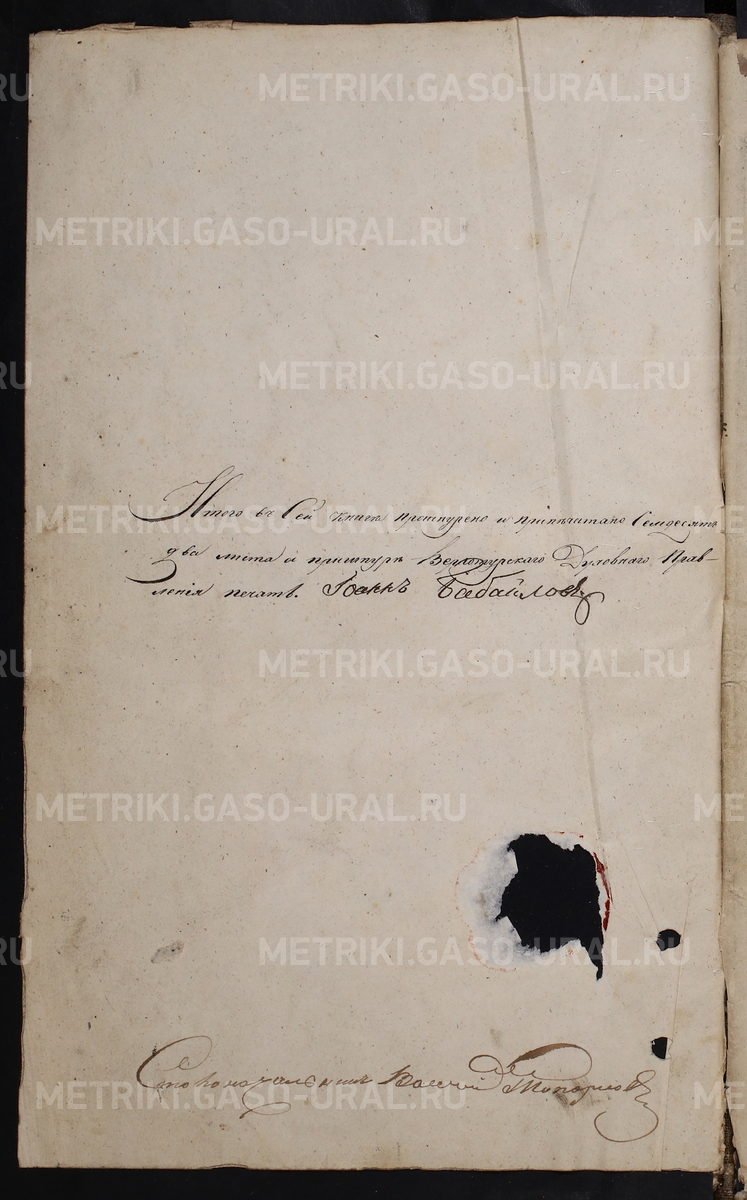 METRIKI.GASO-URAL.RU
METRIKI.GASO-URAL.RU
METRIKI.GASO-URAL.RU
METRIKI.GASO-URAL.RU
Итого въ Сей книге прошнурено и припечатано Семдесятъ
два листа и пришнуръ Верхотурскаго Духовнаго Прав-
ления печать. Иоаннъ Бабайловъ
METRIKI.GASO-URAL.RU
METRIKI.GASO-URAL.RU
METRIKI.GASO-URAL.RU
Столоначальникъ Топорковъ
METRIKI.GASO-URAL.RU